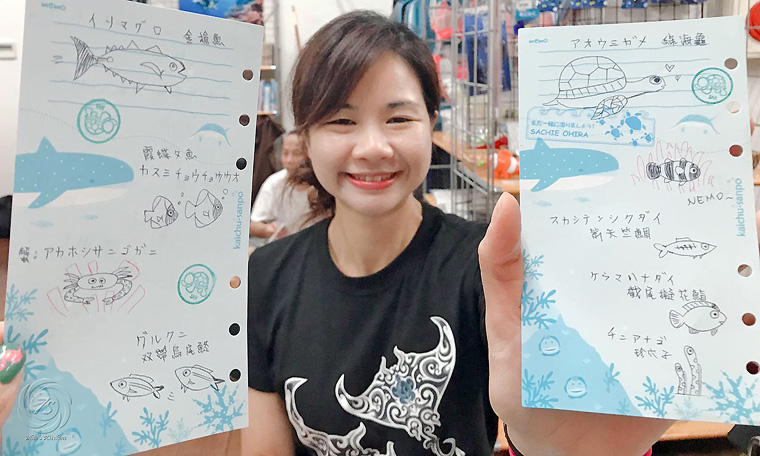 MEMO
イソマグロ 金槍魚
霞蝶々魚
カスミチョウチョウウオ
蟹:アカホシサンゴガニ
グルクン
双帶烏尾鮗
kaichu-sanpo
MEMO
アオウミガメ 綠海龜
また一緒に潜りましょう!
SACHIE OHIRA
NEMO~
スカシテンジクダイ
ケラマハナダイ
チンアナゴ
kaichu-sanpo